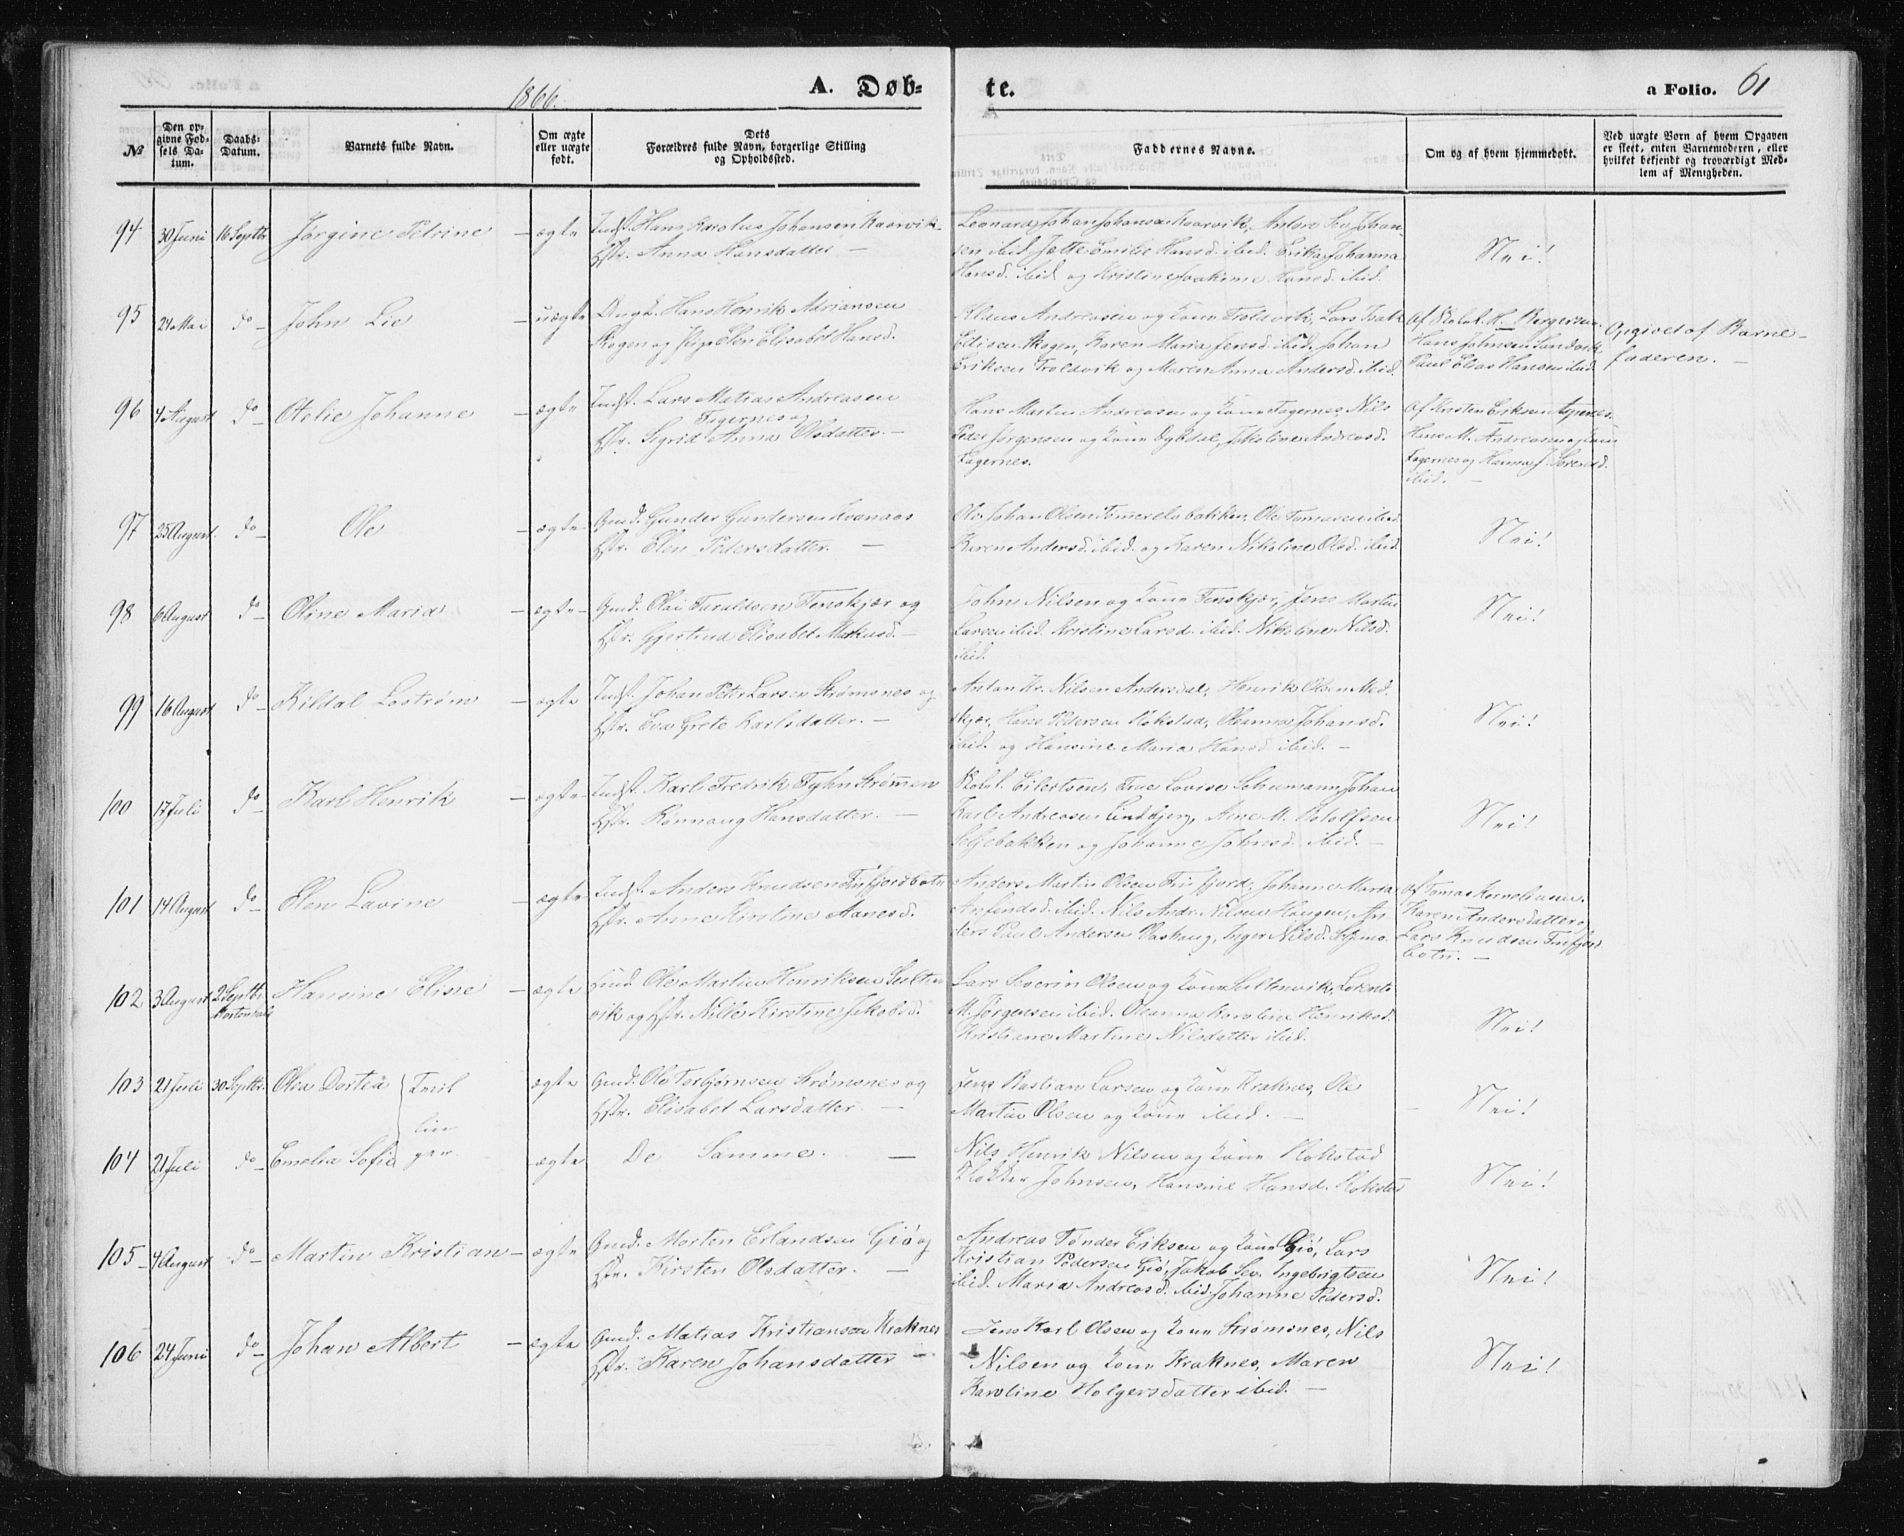 1866.
A. Døb-
te.
a Folio. 61
№
Den op-
givne Fød-
sels Da-
tum.
Daabs-
Datum.
Barnets fulde Navn.
Om ægte
eller uægte
født.
Dets
Forældres fulde Navn, borgerlige Stilling
og Opholdssted.
Faddernes Navne.
Om og af hvem hjemmedøbt.
Ved uægte Børn af hvem Opgaven
er skeet, enten Barnemoderen, eller
hvilket bekjendt og troværdigt Med-
lem af Menigheden.
94 30 Juni 16 Septbr Jørgine Petrine – ægte Indst. Hans Karolus Johansen Kaarvik
Hstr. Anna Hansdatter –
Leonard Johan Johansen Kaarvik, Anton Johan-
sen ibid. Jette Emilie Hansd. ibid. Erika Johanna
Hansd. ibid og Kristine Joakime Hansd. ibid.
Nei!
95 24 Mai do – John Lie – uægte Ungk. Hans Henrik Adriansen
Skogen og Pige Elen Elisabet Hansd.
Klaus Andreasen og Kone Troldvik, Lars Isak
Edisen Skogen, Karen Maria Jensd. ibid. Johan
Eriksen Troldvik og Maren Anna Andersd. ibid.
Af Skolel. H. Bergersen
Hans Johnsen Sandvik
Paul Elias Hansen ibid.
Opgivet af Barne-
faderen. –
96 4 August do – Otelie Johanne – ægte Indst. Lars Matias Andreasen
Fagernes og
Hstr. Sigrid Anna Olsdatter –
Hans Martin Andreasen og Kone Fagernes, Nils
Peder Jørgensen og Kone Jakoline Andreasd.
Fagernes.
Af Kirsten Eriksen
Hans M. Andreasen og Kone
Fagernes og Hanna J. Sørensd.
ibid. –
97 25 August do – Ole – ægte – Gmd. Gunder Gundersen Kvanaas
Hstr. Elen Pedersdatter. –
Ole Johan Olsen Tømmerelvbakken, Ole Tomasen ibid.
Karen Andersd. ibid. og Karen Nikoline Olsd. ibid
Nei!
98 6 August do – Oline Maria – ægte – Gmd. Olai Taraldsen Tenskjær og
Hstr. Gjertrud Elisabet Markusd. –
John Nilsen og Kone Tenskjær, Jens Martin
Larsen ibid. Kristine Larsd. ibid. Nikoline Nilsd.
ibid.
Nei!
99 16 August do – Kildal Lostrøm – ægte Indst. Johan Peter Larsen Strømsnes og
Hstr. Eva Grete Karlsdatter. –
Anton Kr. Nilsen Andersdal, Henrik Olsen Med-
skjær, Hans Pedersen Kokstad, Oleanna Johansd.
ibid. og Hansine Maria Hansd. ibid. –
Nei!
100 17 Juli do – Karl Henrik – ægte – Indst. Karl Fredrik Fyhn Strømmen
Hstr. Rønnaug Hansdatter. –
Skolel. Eilertsen, Frue Lovise Schumann, Johan
Karl Andreasen Lindbjerg, Arne M. Rotolfsen
Seljebakken og Johanne Johnsd. ibid. –
Nei!
101 14 August do – Elen Lavine – ægte – Indst. Anders Knudsen Finfjordbotn
Hstr. Anne Kirstine Aanesd.
Anders Martin Olsen Finfjord, Johanne Maria
Arfindsd. ibid. Nils Andr. Nilsen Haugen, An-
ders Paul Andersen Vaskaug, Inger Nilsd.
Af Tomas Korneliusen
Karen Andersdatter og
Lars Knudsen Finfjord
botn. –
102 3 August 2 Septbr. Mortenhals Hansine Eline – ægte Gmd Ole Martin Henriksen Sulten
vik og Hstr. Nille Kirstine Jakobsd.
Lars Severin Olsen og Kone Sultenvik, Lorents
M. Jørgensen ibid. Oleanna Karoline Henriksd.
Kristiane Martine Nilsdatter ibid.
Nei!
103 21 Juli 30 Septbr. Olea Dortea Tvil
lin
ægte Gmd. Ole Torbjørnsen Strømsnes og
Hstr. Elisabet Larsdatter. –
Jens Bastian Larsen og Kone Kraknes, Ole
Martin Olsen og Kone ibid. –
Nei!
104 21 Juli do – Emelia Sofie ger – ægte De Samme. –
Nils Henrik Nilsen og Kone Kokstad
Klokker Johnsen, Hansine Hansd. Kokstad
Nei!
105 – 4 August do – Martin Kristian – ægte Gmd. Morten Erlandsen Giø og
Hstr. Kirsten Olsdatter. –
Andreas Tønder Eriksen og Kone Giø, Lars
Kristian Pedersen Giø, Jakob Sev. Ingebrigtsen
ibid. Maria Andreasd. ibid Johanne Pedersd.
Nei!
106 24 Juni do – Johan Albert – ægte Gmd. Matias Kristiansen Kraknes
Hstr. Karen Johansdatter –
Jens Karl Olsen og Kone Strømsnes, Nils
Nilsen og Kone Kraknes, Maren
Karoline Holgersdatter ibid. –
Nei!